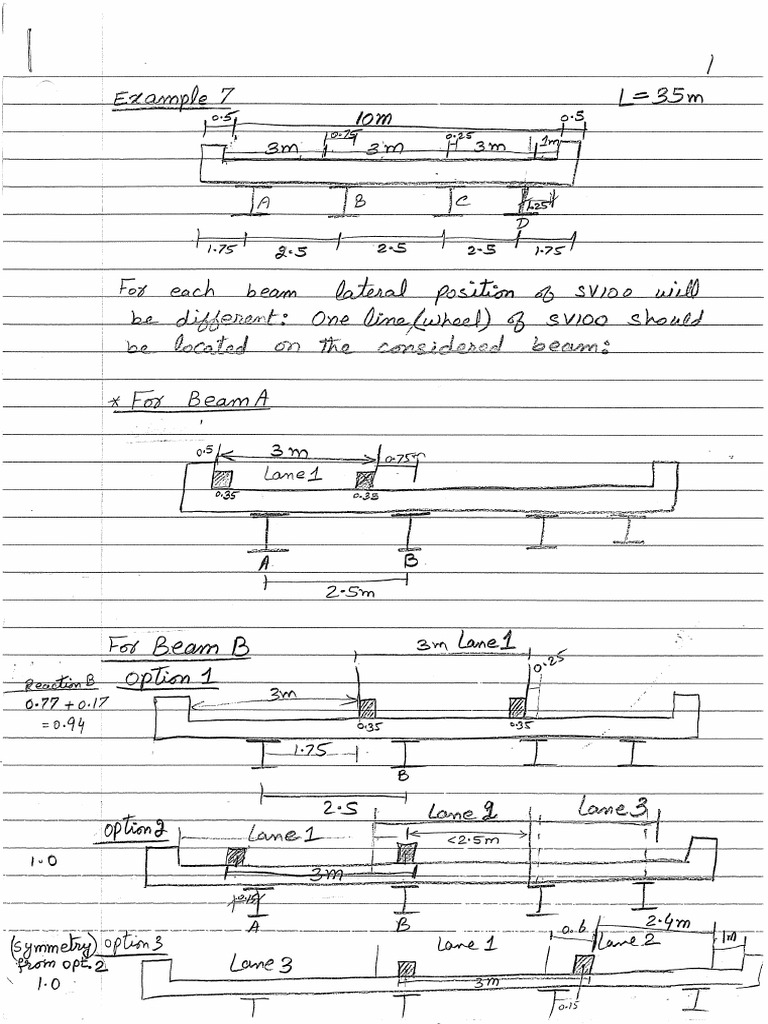 1
Example 7
L=35m
0.5
10m
0.5
3m
0.75
3m
0.25
3m
1m
A
B
C
D
1.25
1.75
2.5
2.5
2.5
1.75
For each beam lateral position of SV100 will
be different: One line (wheel) of SV100 should
be located on the considered beam:
* For Beam A
0.5
3m
0.75
Lane 1
0.35
0.35
A
B
2.5m
For Beam B
3m Lane 1
0.25
Reaction B
0.77 + 0.17
= 0.94
Option 1
3m
0.35
0.35
1.75
B
2.5
Option 2
Lane 1
Lane 2
Lane 3
<2.5m
1.0
3m
0.15
A
B
(symmetry)
from opt. 2
1.0
Option 3
Lane 3
Lane 1
0.6
2.4m
Lane 2
1m
3m
0.15